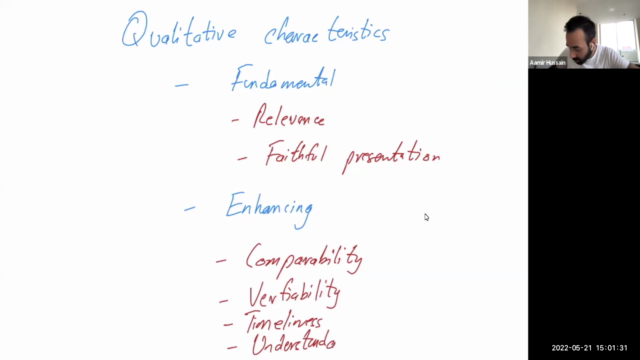 Qualitative characteristics
- Fundamental
- Relevance
- Faithful presentation
- Enhancing
- Comparability
- Verifiability
- Timeliness
- Understanda
Aamir Hussain
2022-05-21 15:01:31